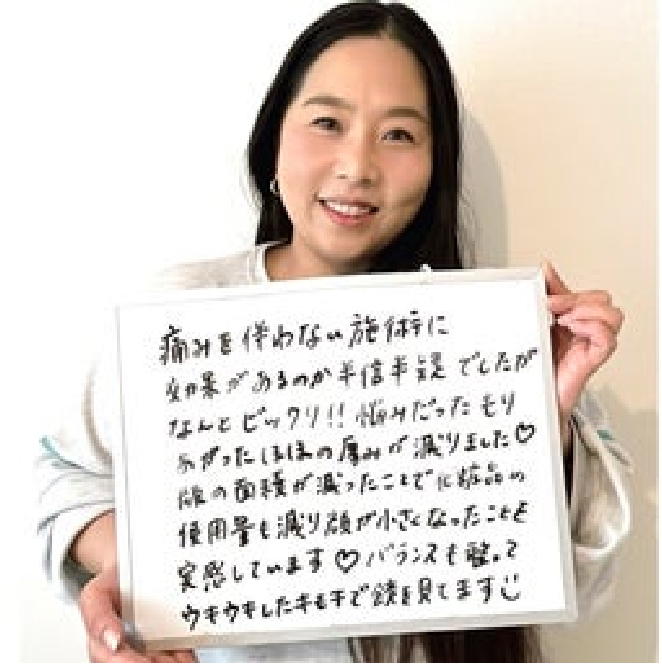 痛みを伴わない施術に
効果があるのか半信半疑でしたが
なんとビックリ!! 悩みだったもり
あがったほほの厚みが減りました♡
顔の面積が減ったことで化粧品の
使用量も減り顔が小さくなったことを
実感しています♡バランスも整って
ウキウキした気持ちで鏡を見てます